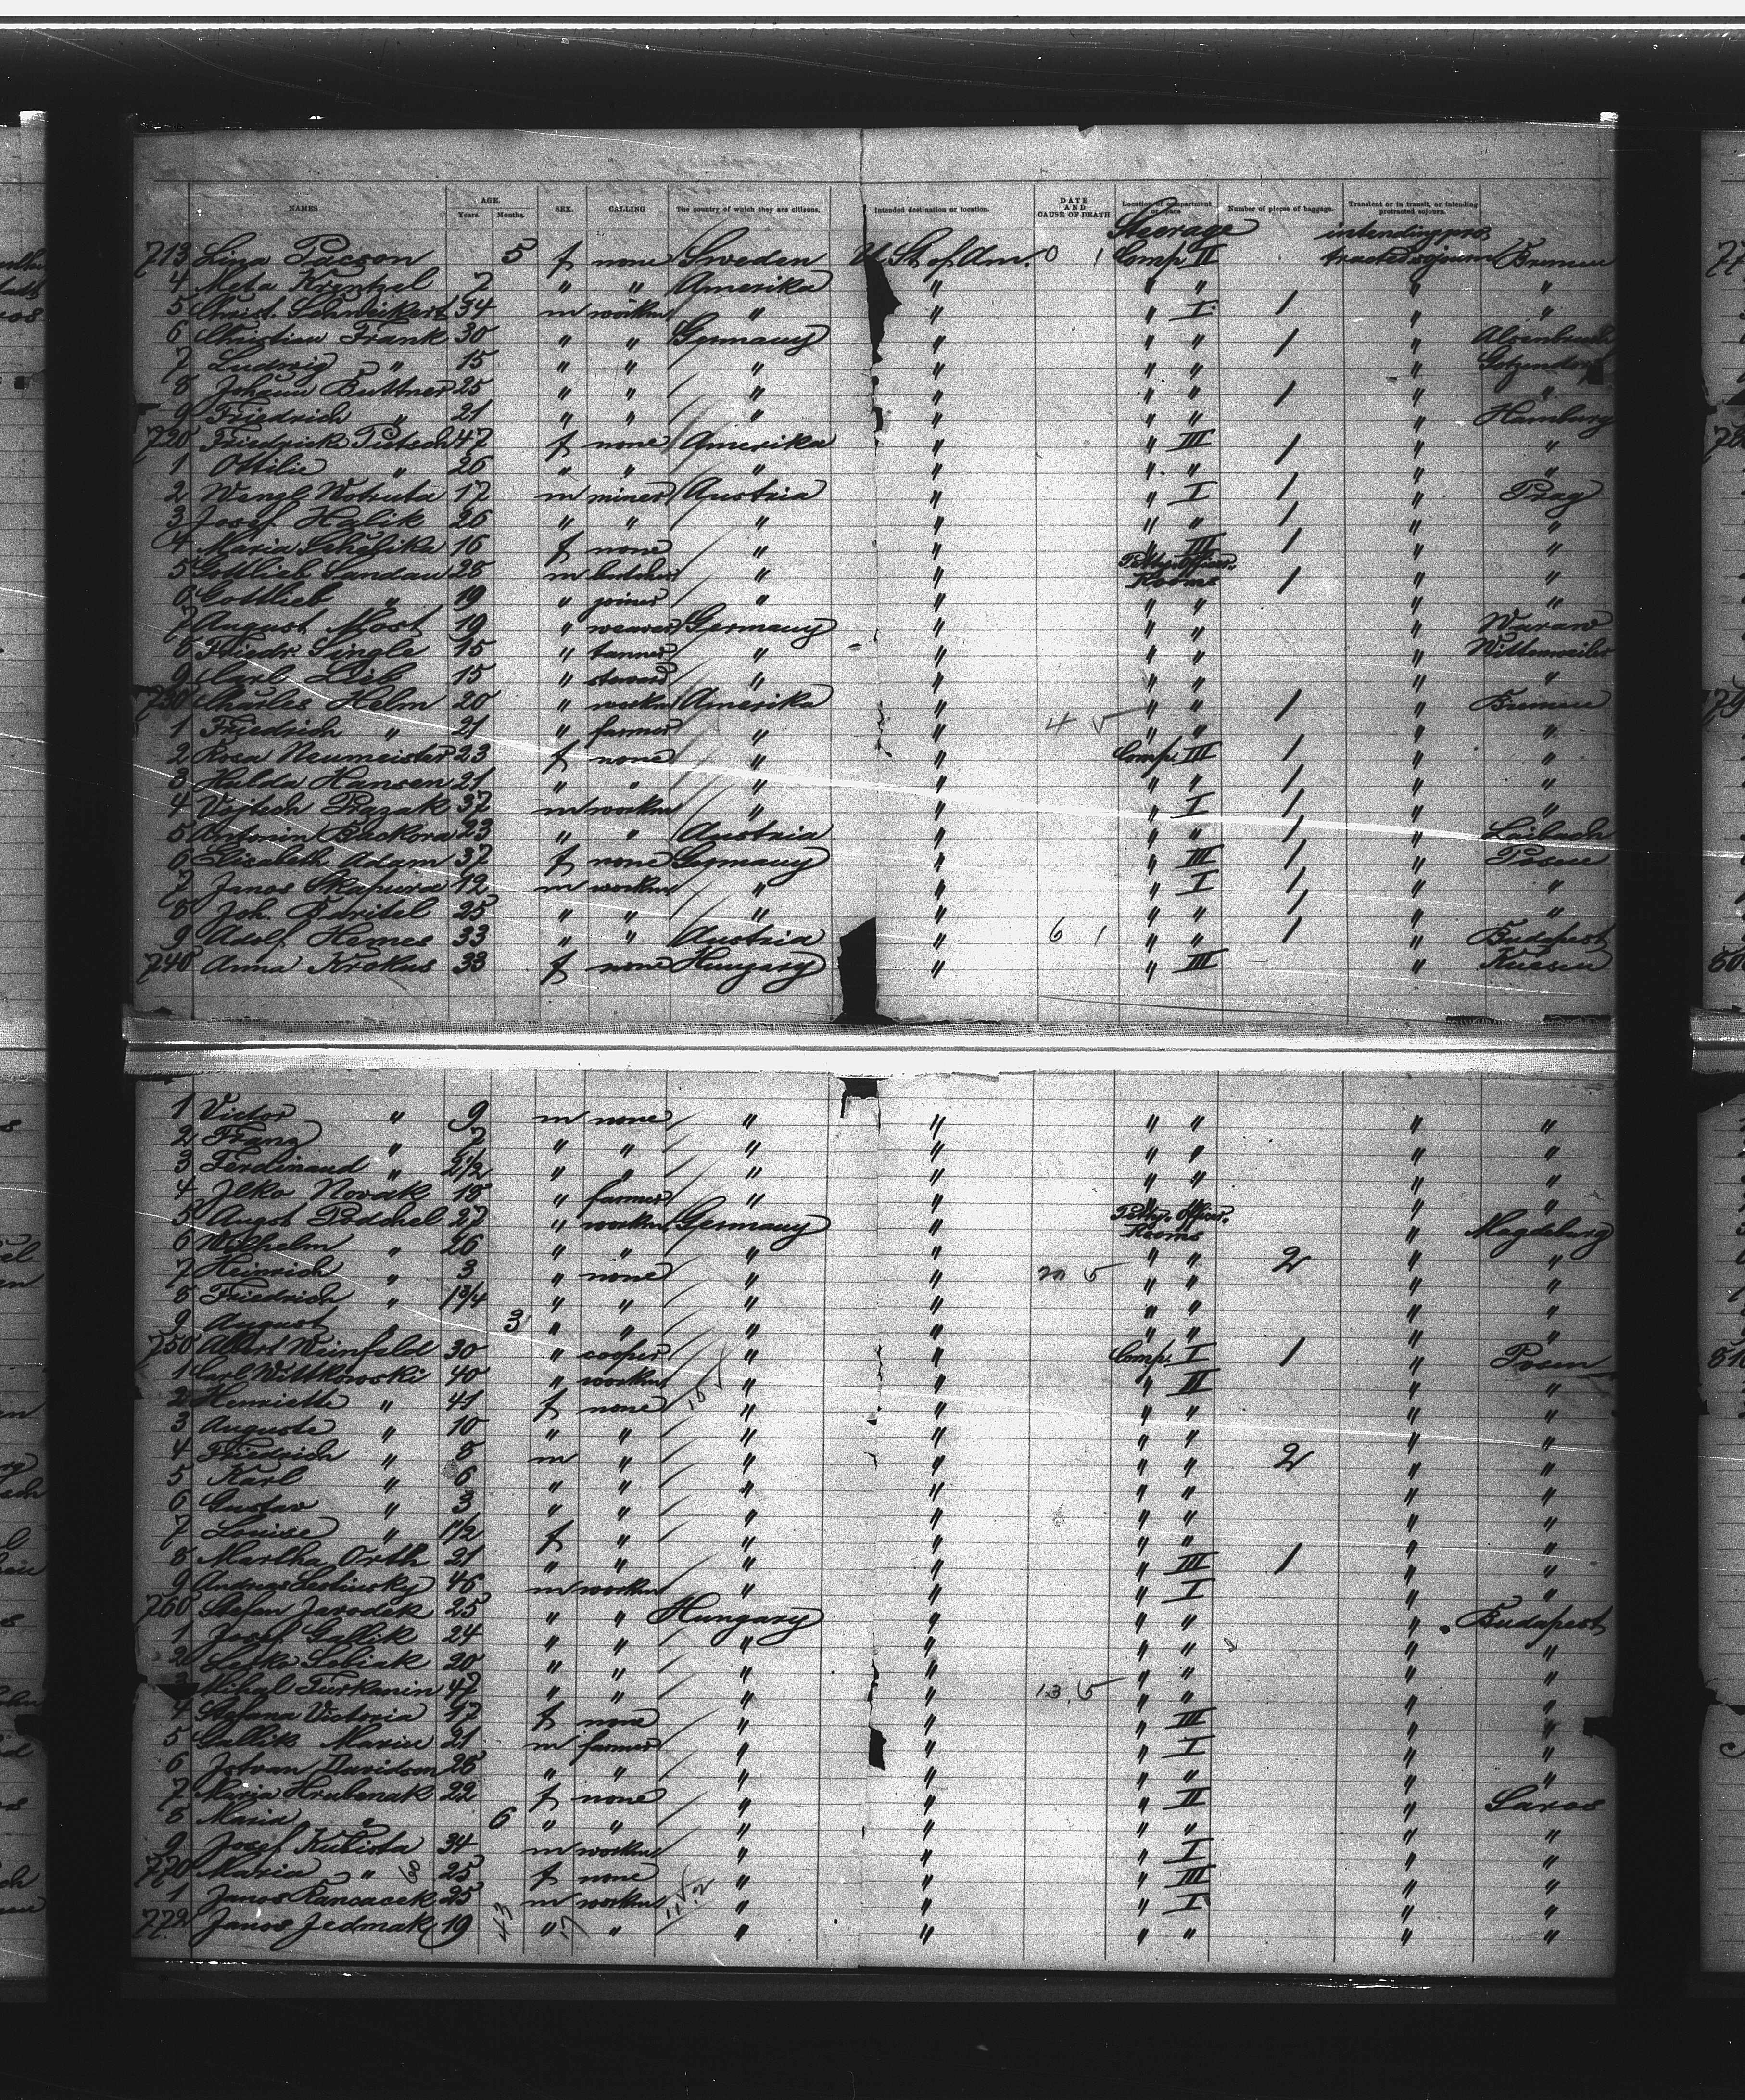 NAMES AGE. Years. Months. SEX. CALLING The country of which they are citizens. Intended destination or location. DATE AND CAUSE OF DEATH Location of compartment or space Number of pieces of baggage. Transient or in transit, or intending protracted sojourn.
Steerage intending pro
713 Lina 5 f none Sweden U. St. of Am. 0 1 Comp II tracted sojourn Bremen
4 Meta Krentzel 7 " " Amerika " " " " "
5 Christ. Schweikert 34 m workm " " " I 1 " "
6 Christian Frank 30 " " Germany " " " 1 "
7 Ludwig " 15 " " " " " " "
8 Johann Buttner 25 " " " " " " 1 " "
9 Friedrich " 21 " " " " " " " Hamburg
720 Friedrich Pietsch 47 f none Amerika " " III 1 " "
1 Ottilie " 26 " " " " " " 1 " "
2 Wenzl Wotruta 17 m miner Austria " " I 1 " Prag
3 Josef Halik 26 " " " " " " 1 " "
4 Maria 16 f none " " " III 1 " "
5 Gottlieb Landau 28 m butcher " " Petty Officer Rooms 1 " "
6 Gottlieb " 19 " joiner " " " " " "
7 August Most 19 " weaver Germany " " " "
8 Friedr. Single 15 " tanner " " " " " Wittenweiler
9 Carl Lieb 15 " steward " " " " " "
730 Charles Helm 20 " workm Amerika " " " 1 " Bremen
1 Friedrich " 21 " farmer " " 4 5 " " " "
2 Rosa Neumeister 23 f none " " Comp. III 1 " "
3 Hulda Hansen 21 " " " " " " 1 " "
4 Vojtech Prazak 37 m workm " " " I 1 " "
5 Antonin 23 " " Austria " " " 1 " Laibach
6 Elisabeth Adam 37 f none Germany " " III 1 " Posen
7 Janos Skapura 12 m workm " " " I 1 " "
8 Joh. Baritel 25 " " " " " " 1 " "
9 Adolf Hemes 33 " " Austria " 6 1 " " 1 " Budapest
740 Anna Krokus 33 f none Hungary " " III "
1 Victor " 9 m none " " " " " "
2 Franz " 7 " " " " " " " "
3 Ferdinand " 2 1/2 " " " " " " " "
4 Jlko Novak 18 " farmer " " " " " "
5 Augst Podchel 27 " workm Germany " Petty Officer Rooms " Magdeburg
6 Wilhelm " 26 " " " " " " 2 " "
7 Heinrich " 3 " none " " 20 5 " " " "
8 Friedrich " 1 3/4 " " " " " " " "
9 August " 3 " " " " " " " "
750 Albert Weinfeld 30 " cooper " " Comp. I 1 " Posen
1 Carl Wittkowski 40 " workm " " " III " "
2 Henriette " 41 f none " " " " " "
3 Auguste " 10 " " " " " " " "
4 Friedrich " 8 m " " " " " 2 " "
5 Karl " 6 " " " " " " " "
6 Gustav " 3 " " " " " " " "
7 Louise " 1 1/2 f " " " " " " "
8 Martha Orth 21 " " " " " III 1 " "
9 Andreas Leslinsky 46 m workm " " " I " "
760 Stefan Jarodek 25 " " Hungary " " " " Budapest
1 Josef Gallik 24 " " " " " " " "
2 Sabiak 20 " " " " " " " "
3 Mihal Turkanin 47 " " " " 13. 5 " " " "
4 Stefana Victoria 17 f none " " " III " "
5 Gallik 21 m farmer " " " I " "
6 Jstvan Davidson 26 " " " " " " " "
7 Maria Hrubenak 22 f none " " " II " Saros
8 Maria " 6 " " " " " " " "
9 Josef Kubista 34 m workm " " " I " "
770 Maria " 25 f none " " " III " "
1 Janos 25 m workm " " " I " "
772 Janos Jedmak 19 " " " " " " " "